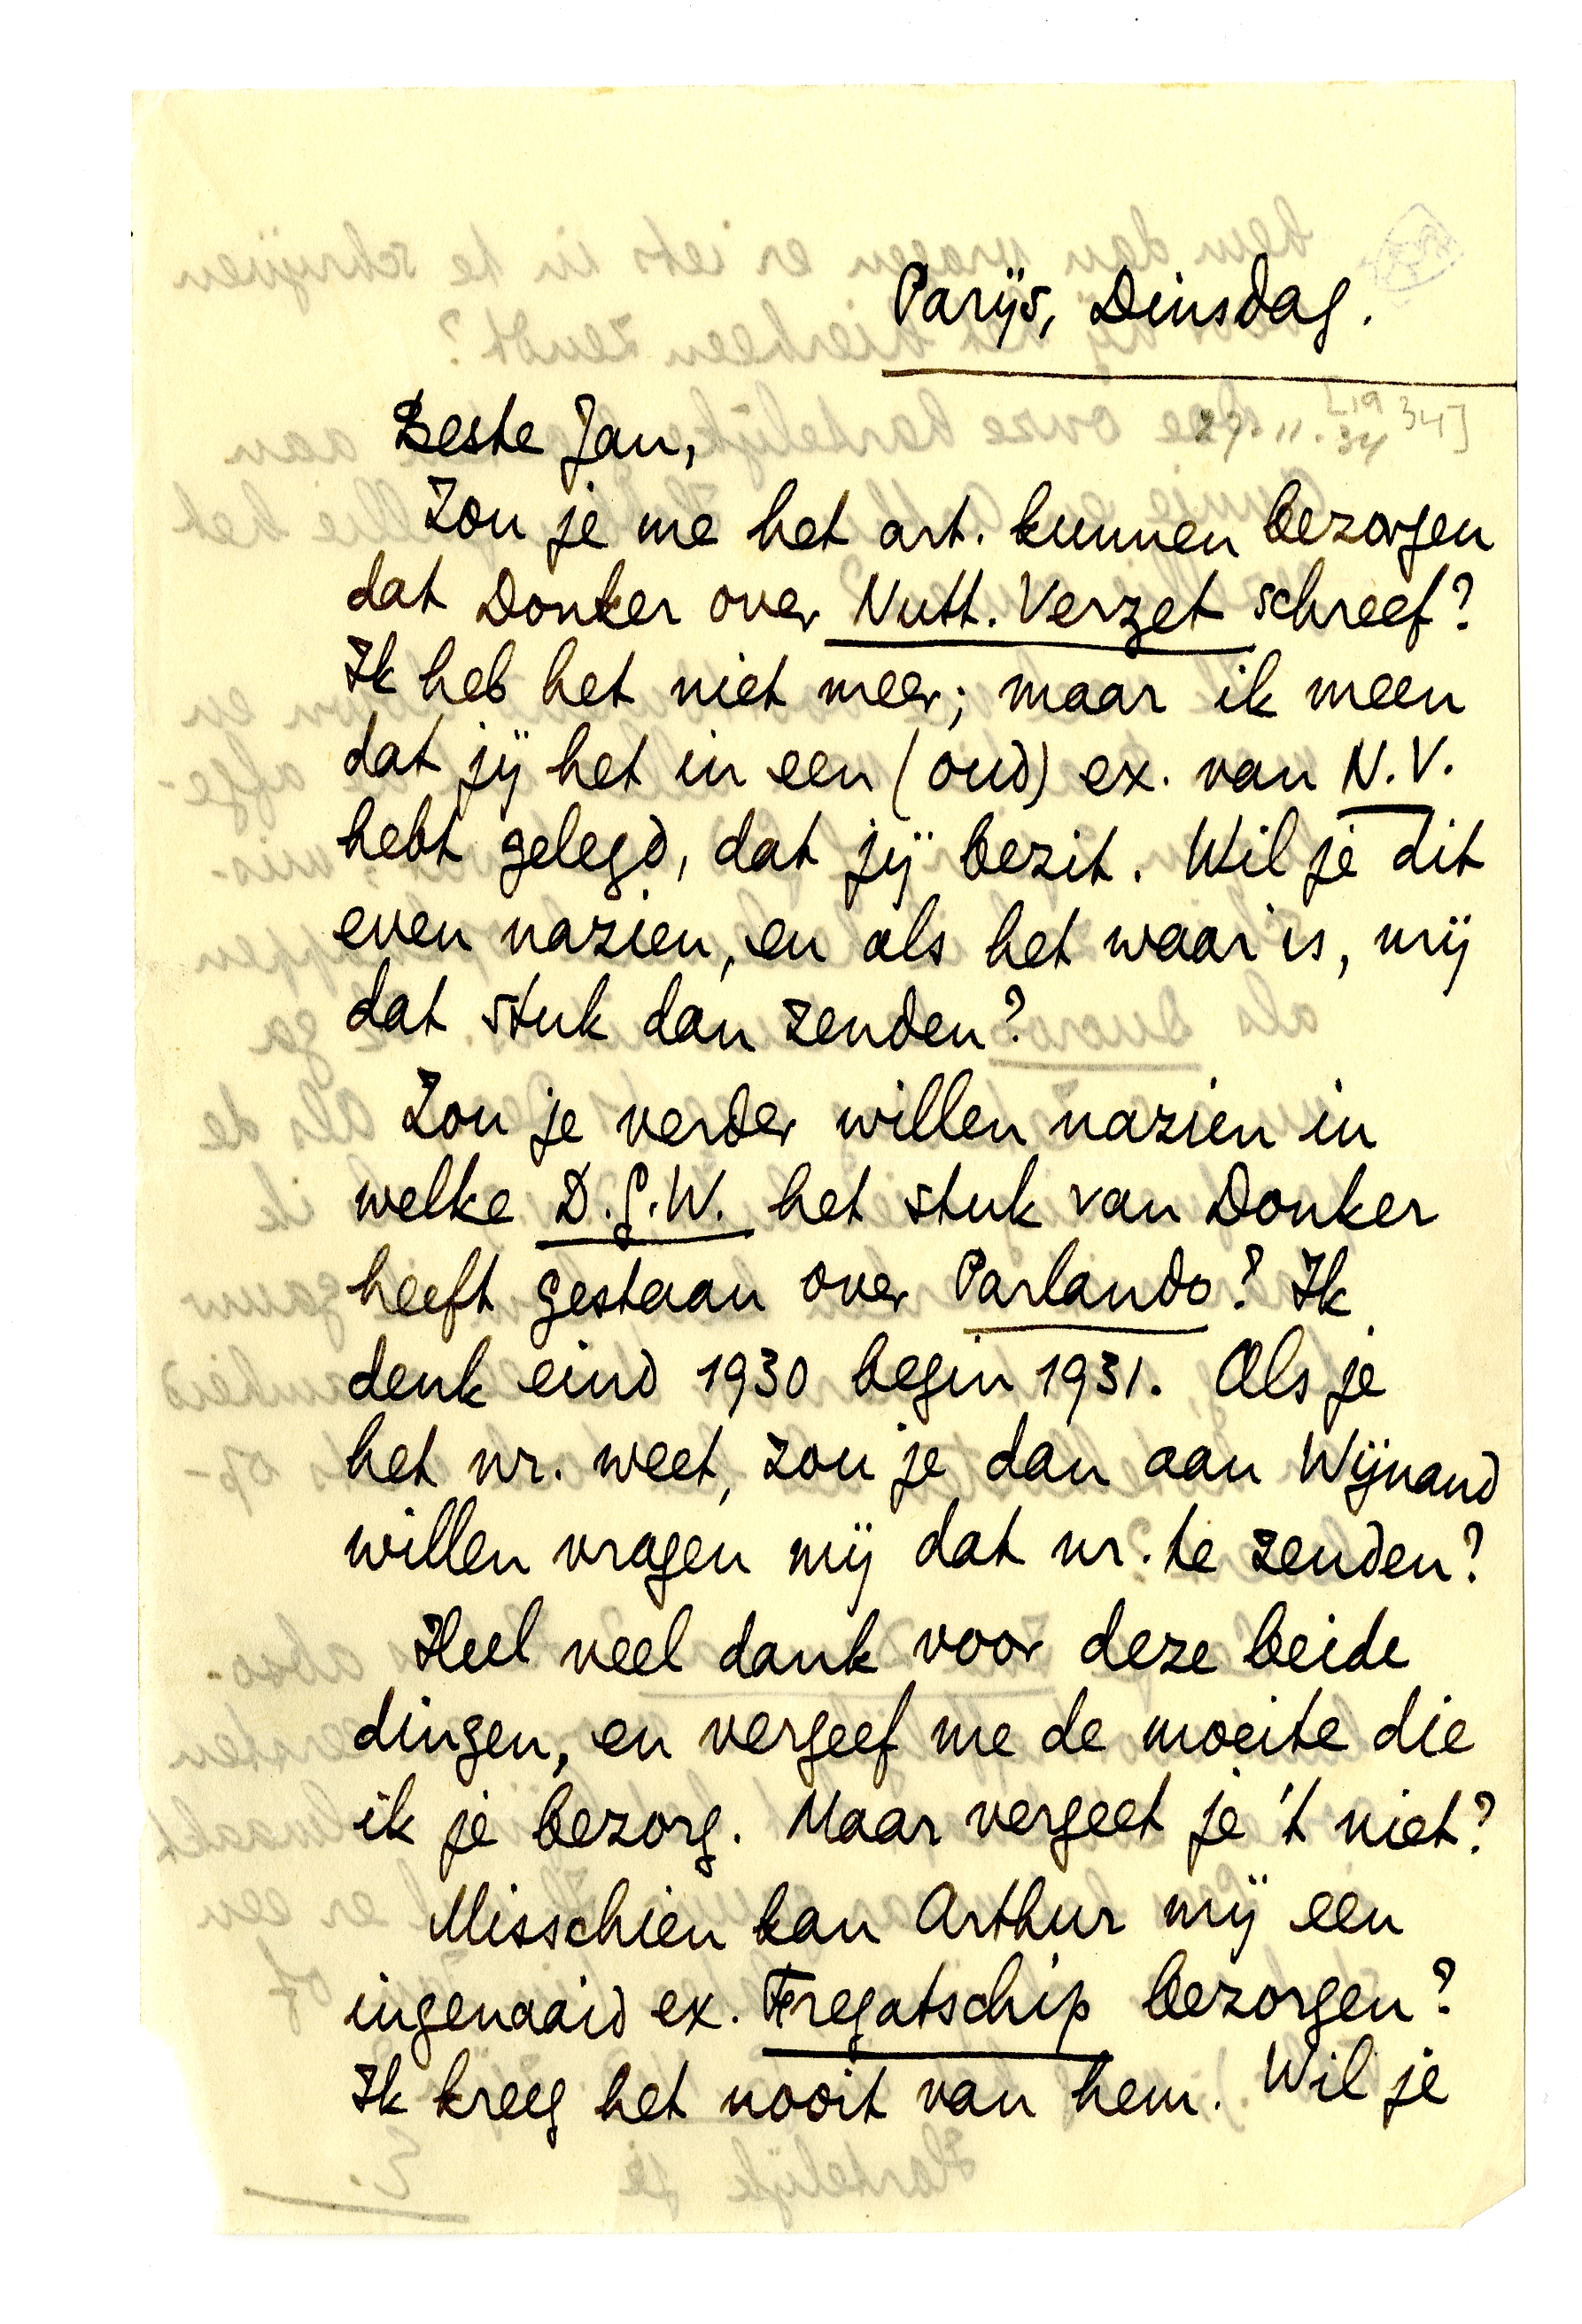 Parijs, Dinsdag.
Beste Jan,
27.11.34 [1934]
Zou je me het art. kunnen bezorgen
dat Donker over Nutt. Verzet schreef?
Ik heb het niet meer; maar ik meen
dat jij het in een (oud) ex. van N.V.
hebt gelegd, dat jij bezit. Wil je dit
even nazien, en als het waar is, mij
dat stuk dan zenden?
Zou je verder willen nazien in
welke D.G.W. het stuk van Donker
heeft gestaan over Parlando? Ik
denk eind 1930 begin 1931. Als je
het nr. weet, zou je dan aan Wijnand
willen vragen mij dat nr. te zenden?
Heel veel dank voor deze beide
dingen, en vergeef me de moeite die
ik je bezorg. Maar vergeet je 't niet?
Misschien kan Arthur mij een
ingenaaid ex. Fregatschip bezorgen?
Ik kreeg het nooit van hem. Wil je